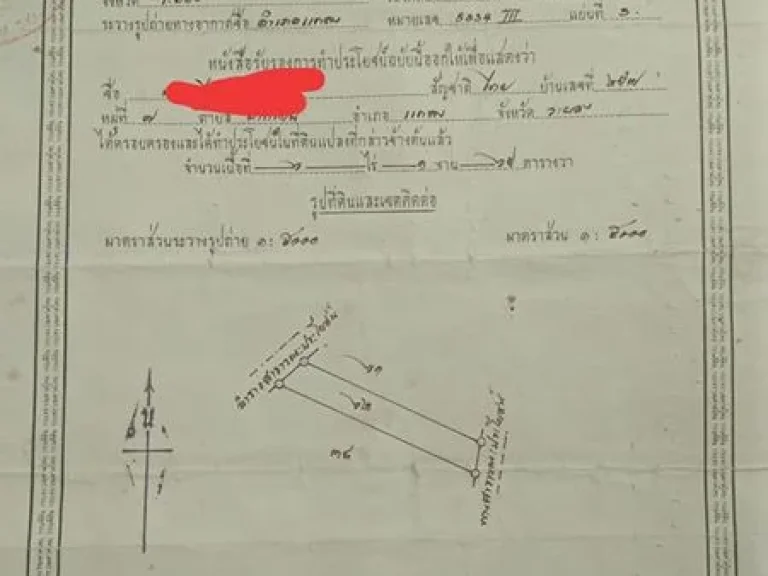 ระวางรูปถ่ายทางอากาศชื่อ อำเภอแกลง หมายเลข 5334 III แผ่นที่
หนังสือรับรองการทำประโยชน์ฉบับนี้ออกให้เพื่อแสดงว่า
ชื่อ สัญชาติ ไทย บ้านเลขที่
หมู่ที่ ๗ ตำบล อำเภอ แกลง จังหวัด ระยอง
ได้ครอบครองและได้ทำประโยชน์ในที่ดินแปลงที่กล่าวข้างต้นแล้ว
จำนวนเนื้อที่ ไร่ ๑ งาน ตารางวา
รูปที่ดินและเขตติดต่อ
มาตราส่วนระวางรูปถ่าย ๑ : ๕๐๐๐ มาตราส่วน ๑ : ๕๐๐๐
ลำรางสาธารณะประโยชน์
น
๓๔
ทางสาธารณประโยชน์